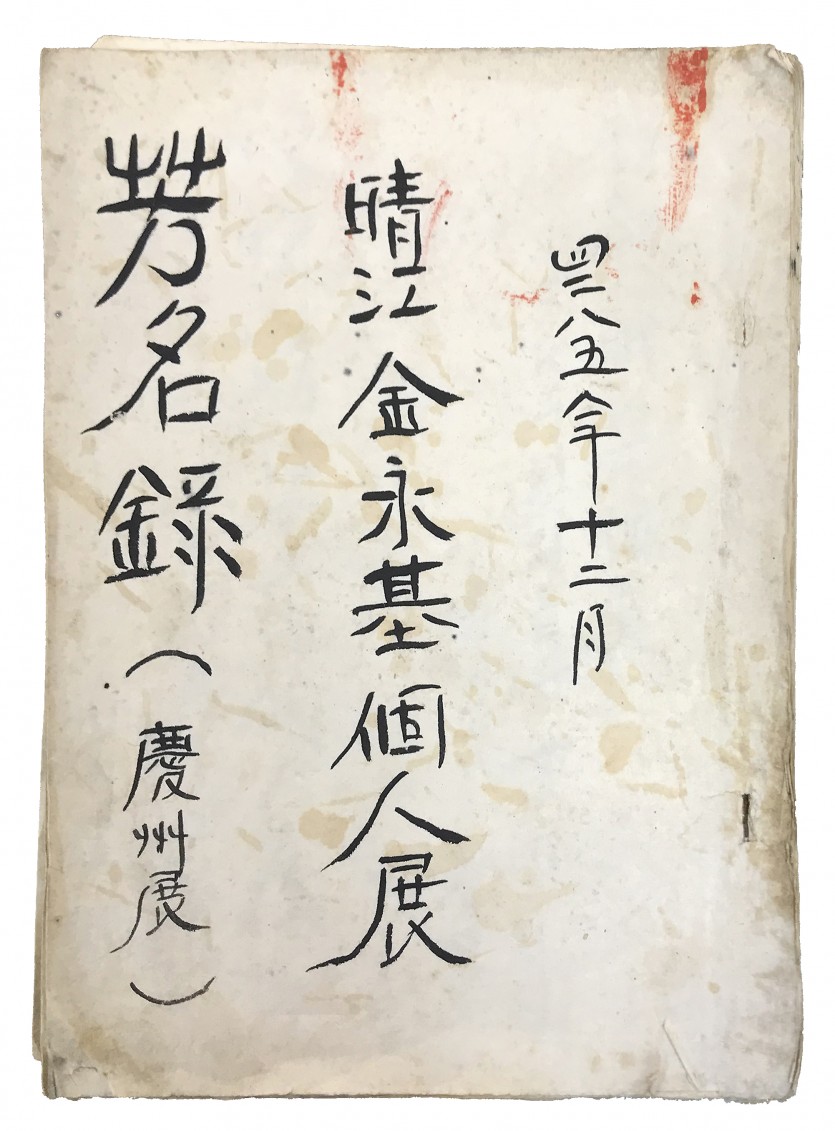 四二八五年十二月
晴江 金永基 個人展
芳名錄（慶州展）